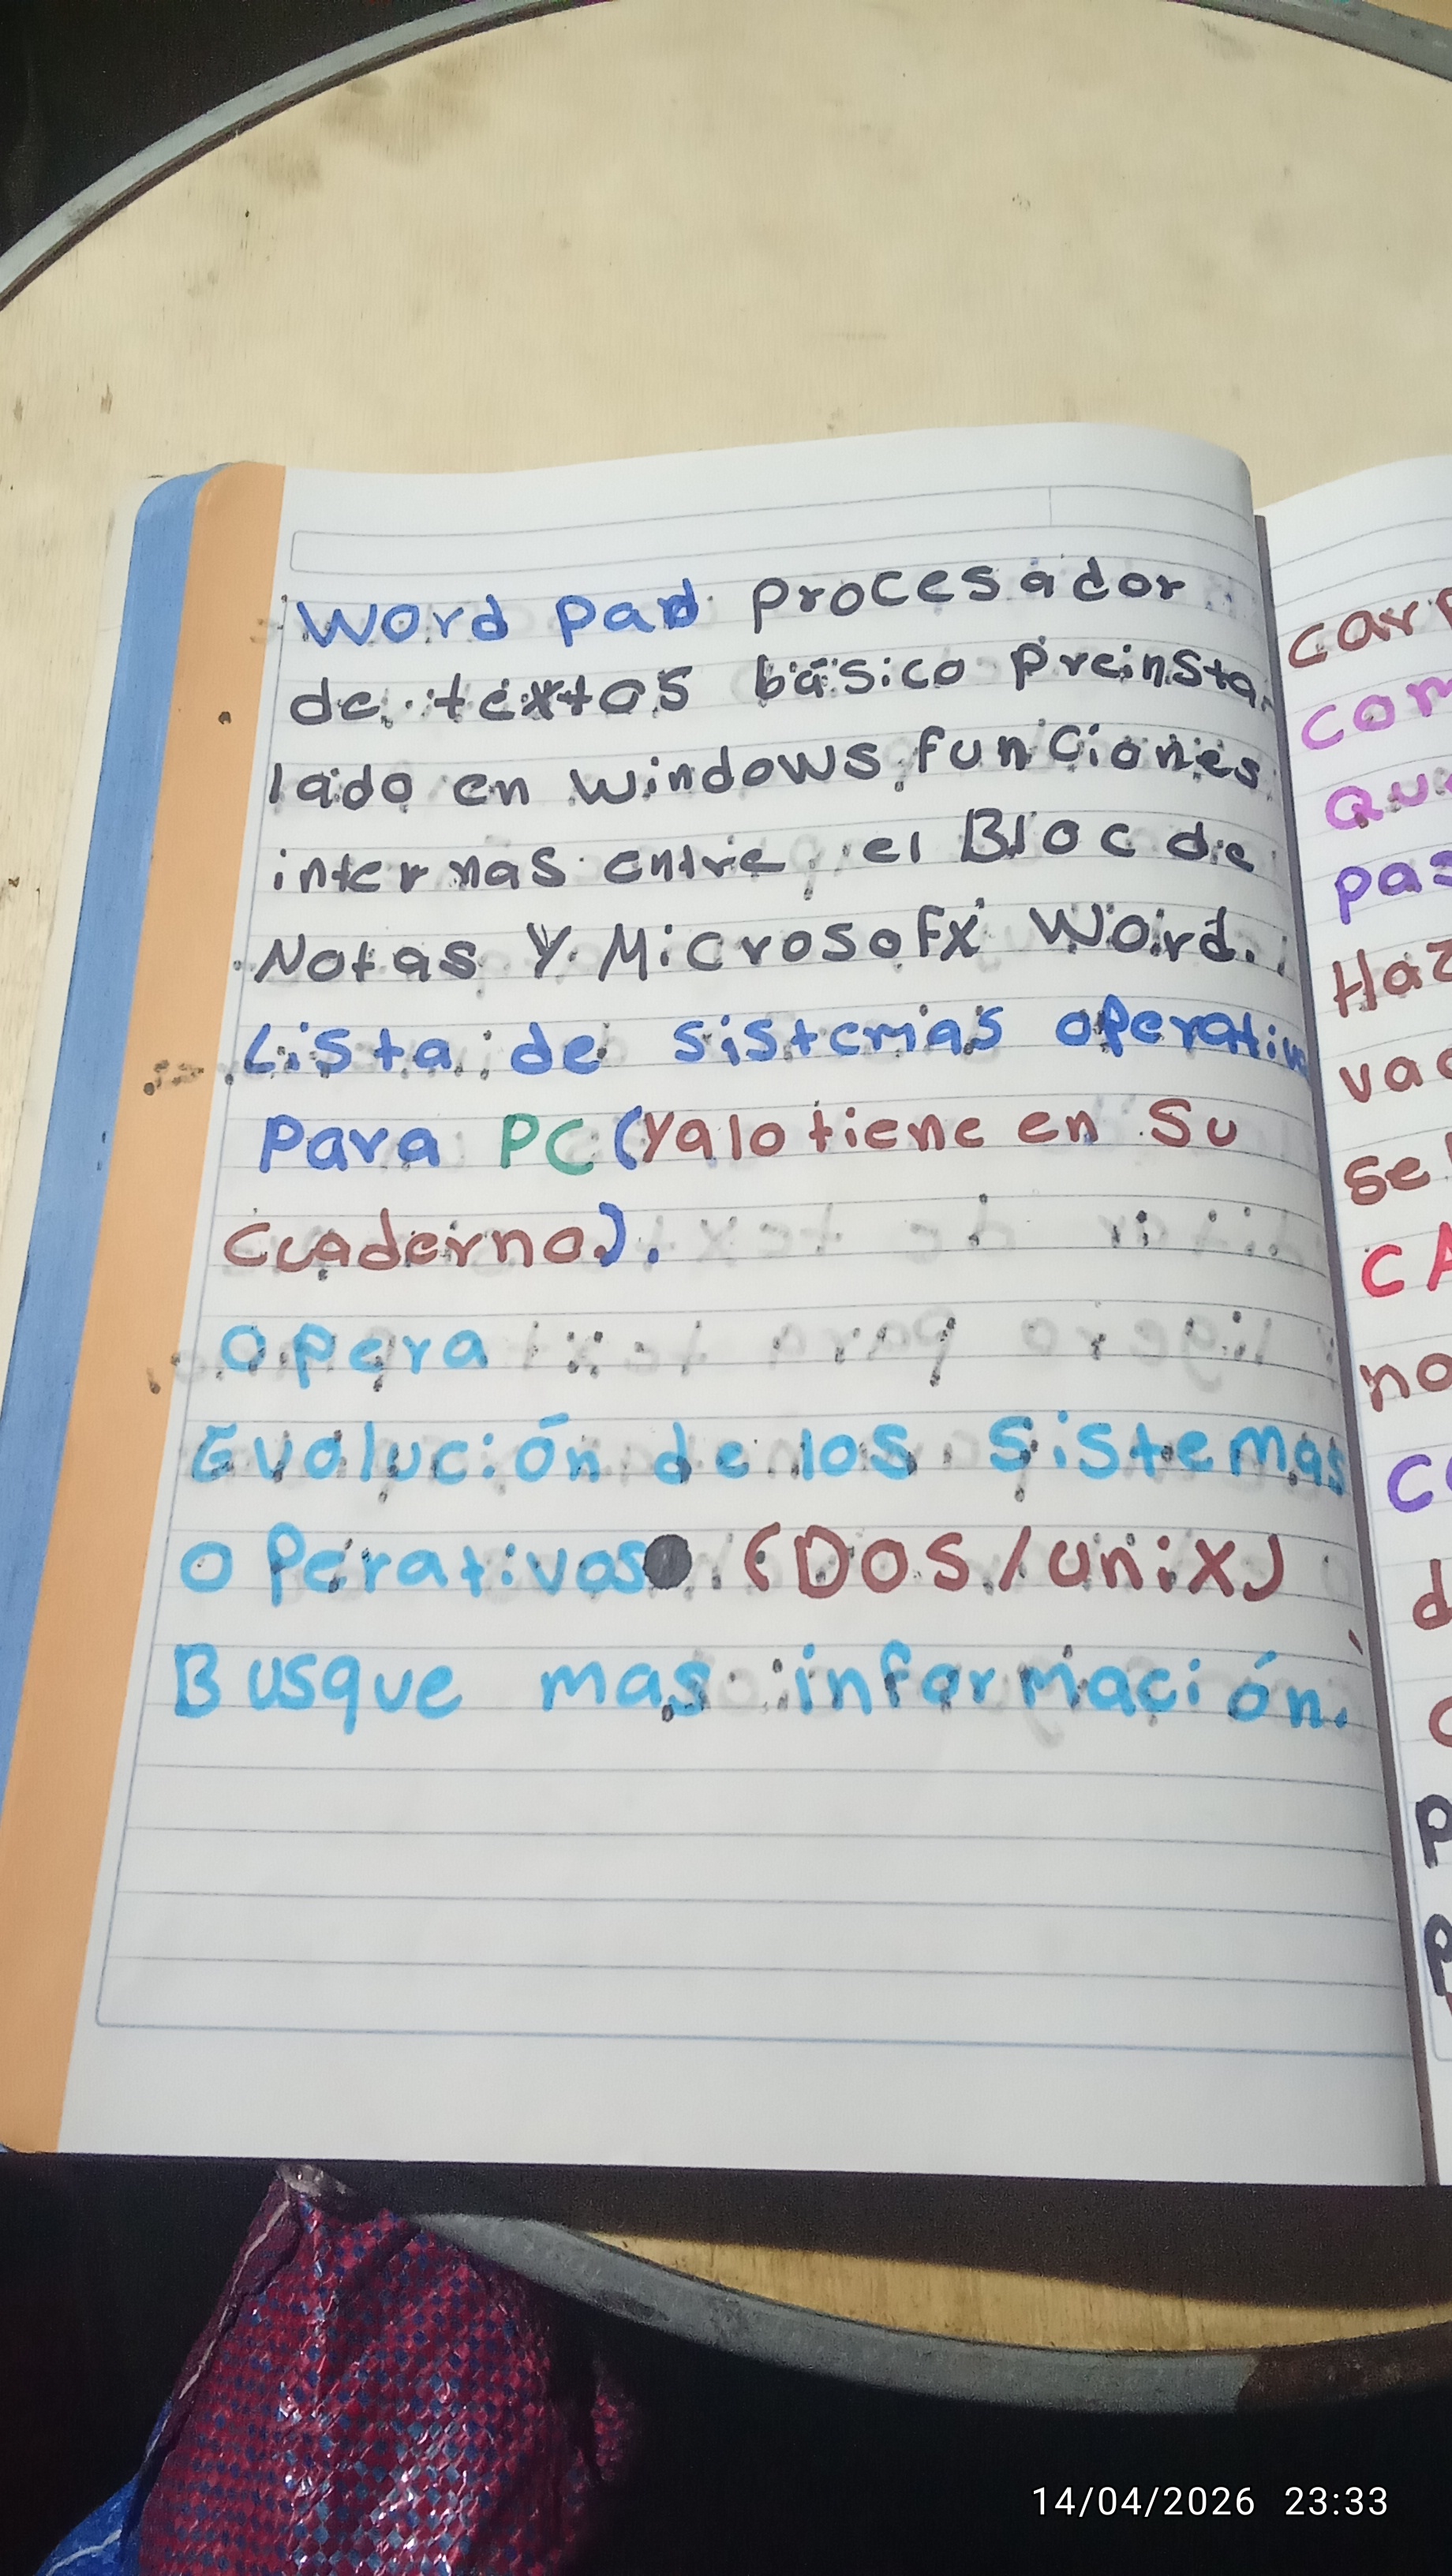 Word Pad Procesador
de textos básico Preinsta-
lado en windows funciones
internas entre el Bloc de
Notas Y Microsofx Word.
Lista de sistemas operativ
Para PC (Yalo tiene en Su
Cuaderno).
Opera
Evolución de los Sistemas
operativos (DOS/unix)
Busque mas información.
car
com
Qu
pas
Haz
va
se
CA
no
C
d
C
P
P
14/04/2026 23:33